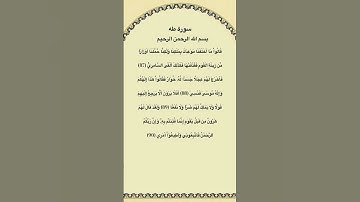 سورة طه
بسم الله الرحمن الرحيم
قَالُوا مَا أَخْلَفْنَا مَوْعِدَكَ بِمَلْكِنَا وَلَٰكِنَّا حُمِّلْنَا أَوْزَارًا
مِّن زِينَةِ الْقَوْمِ فَقَذَفْنَاهَا فَكَذَٰلِكَ أَلْقَى السَّامِرِيُّ (87)
فَأَخْرَجَ لَهُمْ عِجْلًا جَسَدًا لَّهُ خُوَارٌ فَقَالُوا هَٰذَا إِلَٰهُكُمْ
وَإِلَٰهُ مُوسَىٰ فَنَسِيَ (88) أَفَلَا يَرَوْنَ أَلَّا يَرْجِعُ إِلَيْهِمْ
قَوْلًا وَلَا يَمْلِكُ لَهُمْ ضَرًّا وَلَا نَفْعًا (89) وَلَقَدْ قَالَ لَهُمْ
هَارُونُ مِن قَبْلُ يَا قَوْمِ إِنَّمَا فُتِنتُم بِهِ ۖ وَإِنَّ رَبَّكُمُ
الرَّحْمَٰنُ فَاتَّبِعُونِي وَأَطِيعُوا أَمْرِي (90)